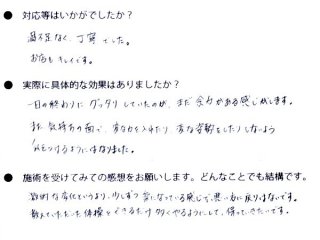 ● 対応等はいかがでしたか？
過不足なく、丁寧でした。
お店もキレイです。
● 実際に具体的な効果はありましたか？
一日の終わりにグッタリしていたのが、まだ余力がある感じがします。
また、気持ちの面で、変な力を入れたり、変な姿勢をしたりしないよう
気をつけるようにはなりました。
● 施術を受けてみての感想をお願いします。どんなことでも結構です。
劇的な変化というより、少しずつ楽になっている感じで、悪い方に戻りはないです。
教えていただいた体操をできるだけ多くやるようにして、保っていきたいです。